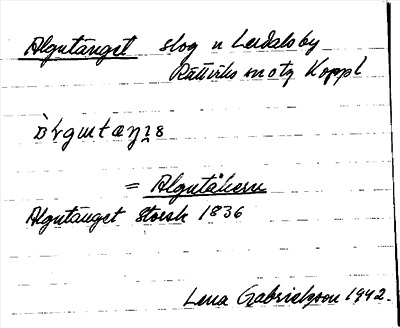 Algutänget skog n Leksdalsby
Rättviks sn o tg Koppl
= Algutåkern
Algutänget Storsk 1836
Lena Gabrielsson 1942.